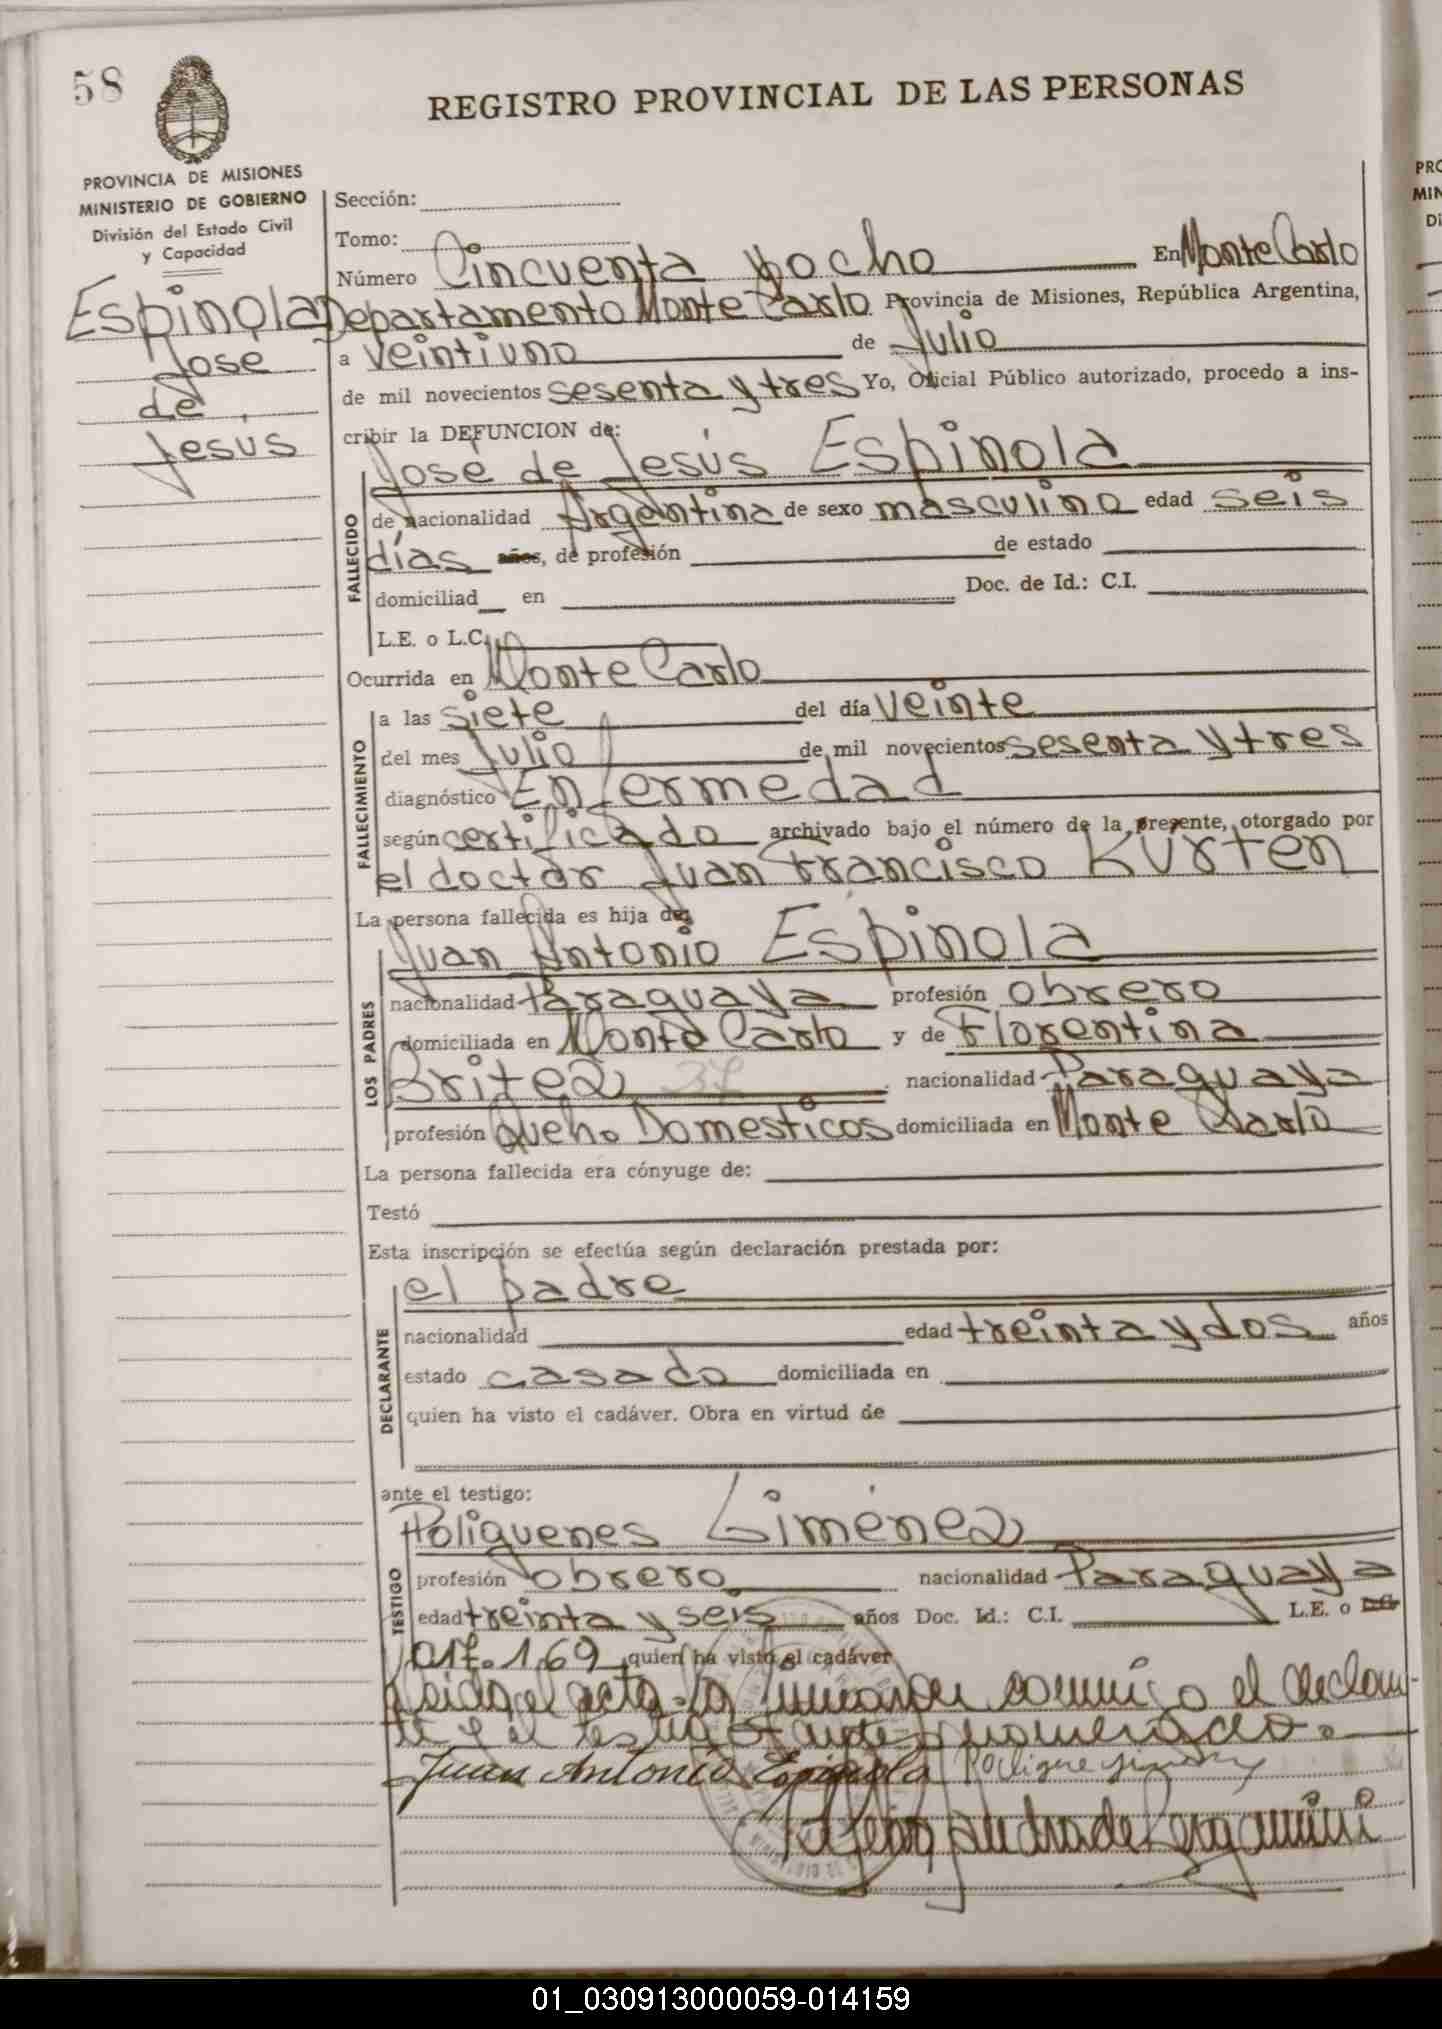 58
REGISTRO PROVINCIAL DE LAS PERSONAS
PROVINCIA DE MISIONES
MINISTERIO DE GOBIERNO
División del Estado Civil
y Capacidad
Espinola
Jose
de
Jesús
Sección:
Tomo:
Número Cincuenta y ocho En Monte Carlo
Departamento Monte Carlo Provincia de Misiones, República Argentina,
a veintiuno de Julio
de mil novecientos sesenta y tres Yo, Oficial Público autorizado, procedo a ins-
cribir la DEFUNCION de:
José de Jesús Espinola
FALLECIDO
de nacionalidad Argentina de sexo masculino edad seis
días años, de profesión de estado
domiciliad en Doc. de Id.: C.I.
L.E. o L.C.
Ocurrida en Monte Carlo
FALLECIMIENTO
a las siete del día veinte
del mes Julio de mil novecientos sesenta y tres
diagnóstico Enfermedad
según certificado archivado bajo el número de la presente, otorgado por
el doctor Juan Francisco Kurten
La persona fallecida es hija de:
LOS PADRES
Juan Antonio Espinola
nacionalidad Paraguaya profesión obrero
domiciliada en Monte Carlo y de Florentina
Britez 37 nacionalidad Paraguaya
profesión Queh. Domesticos domiciliada en Monte Carlo
La persona fallecida era cónyuge de:
Testó
Esta inscripción se efectúa según declaración prestada por:
DECLARANTE
el padre
nacionalidad edad treinta y dos años
estado casado domiciliada en
quien ha visto el cadáver. Obra en virtud de
ante el testigo:
TESTIGO
Poliguenes Giménez
profesión obrero nacionalidad Paraguaya
edad treinta y seis años Doc. Id.: C.I. L.E. o
017.169 quien ha visto el cadáver
Leida el acta la firmaron conmigo el declaran-
te y el testigo antes
Juan Antonio Espinola
01_030913000059-014159